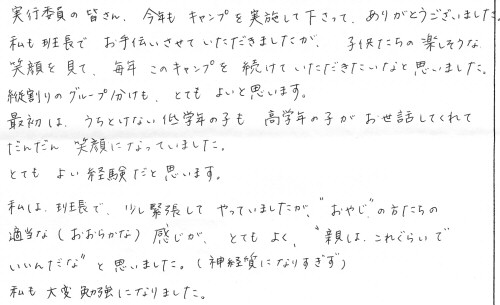 実行委員の皆さん、今年もキャンプを実施して下さって、ありがとうございました。
私も班長でお手伝いさせていただきましたが、子供たちの楽しそうな
笑顔を見て、毎年このキャンプを続けていただきたいなと思いました。
縦割りのグループ分けも、とてもよいと思います。
最初は、うちとけない低学年の子も高学年の子がお世話してくれて
だんだん笑顔になっていました。
とてもよい経験だと思います。
私は、班長で、少し緊張してやっていましたが、"おやじ"の方たちの
適当な(おおらかな)感じが、とてもよく、"親は、これぐらいで
いいんだな"と思いました。(神経質になりすぎず)
私も大変勉強になりました。